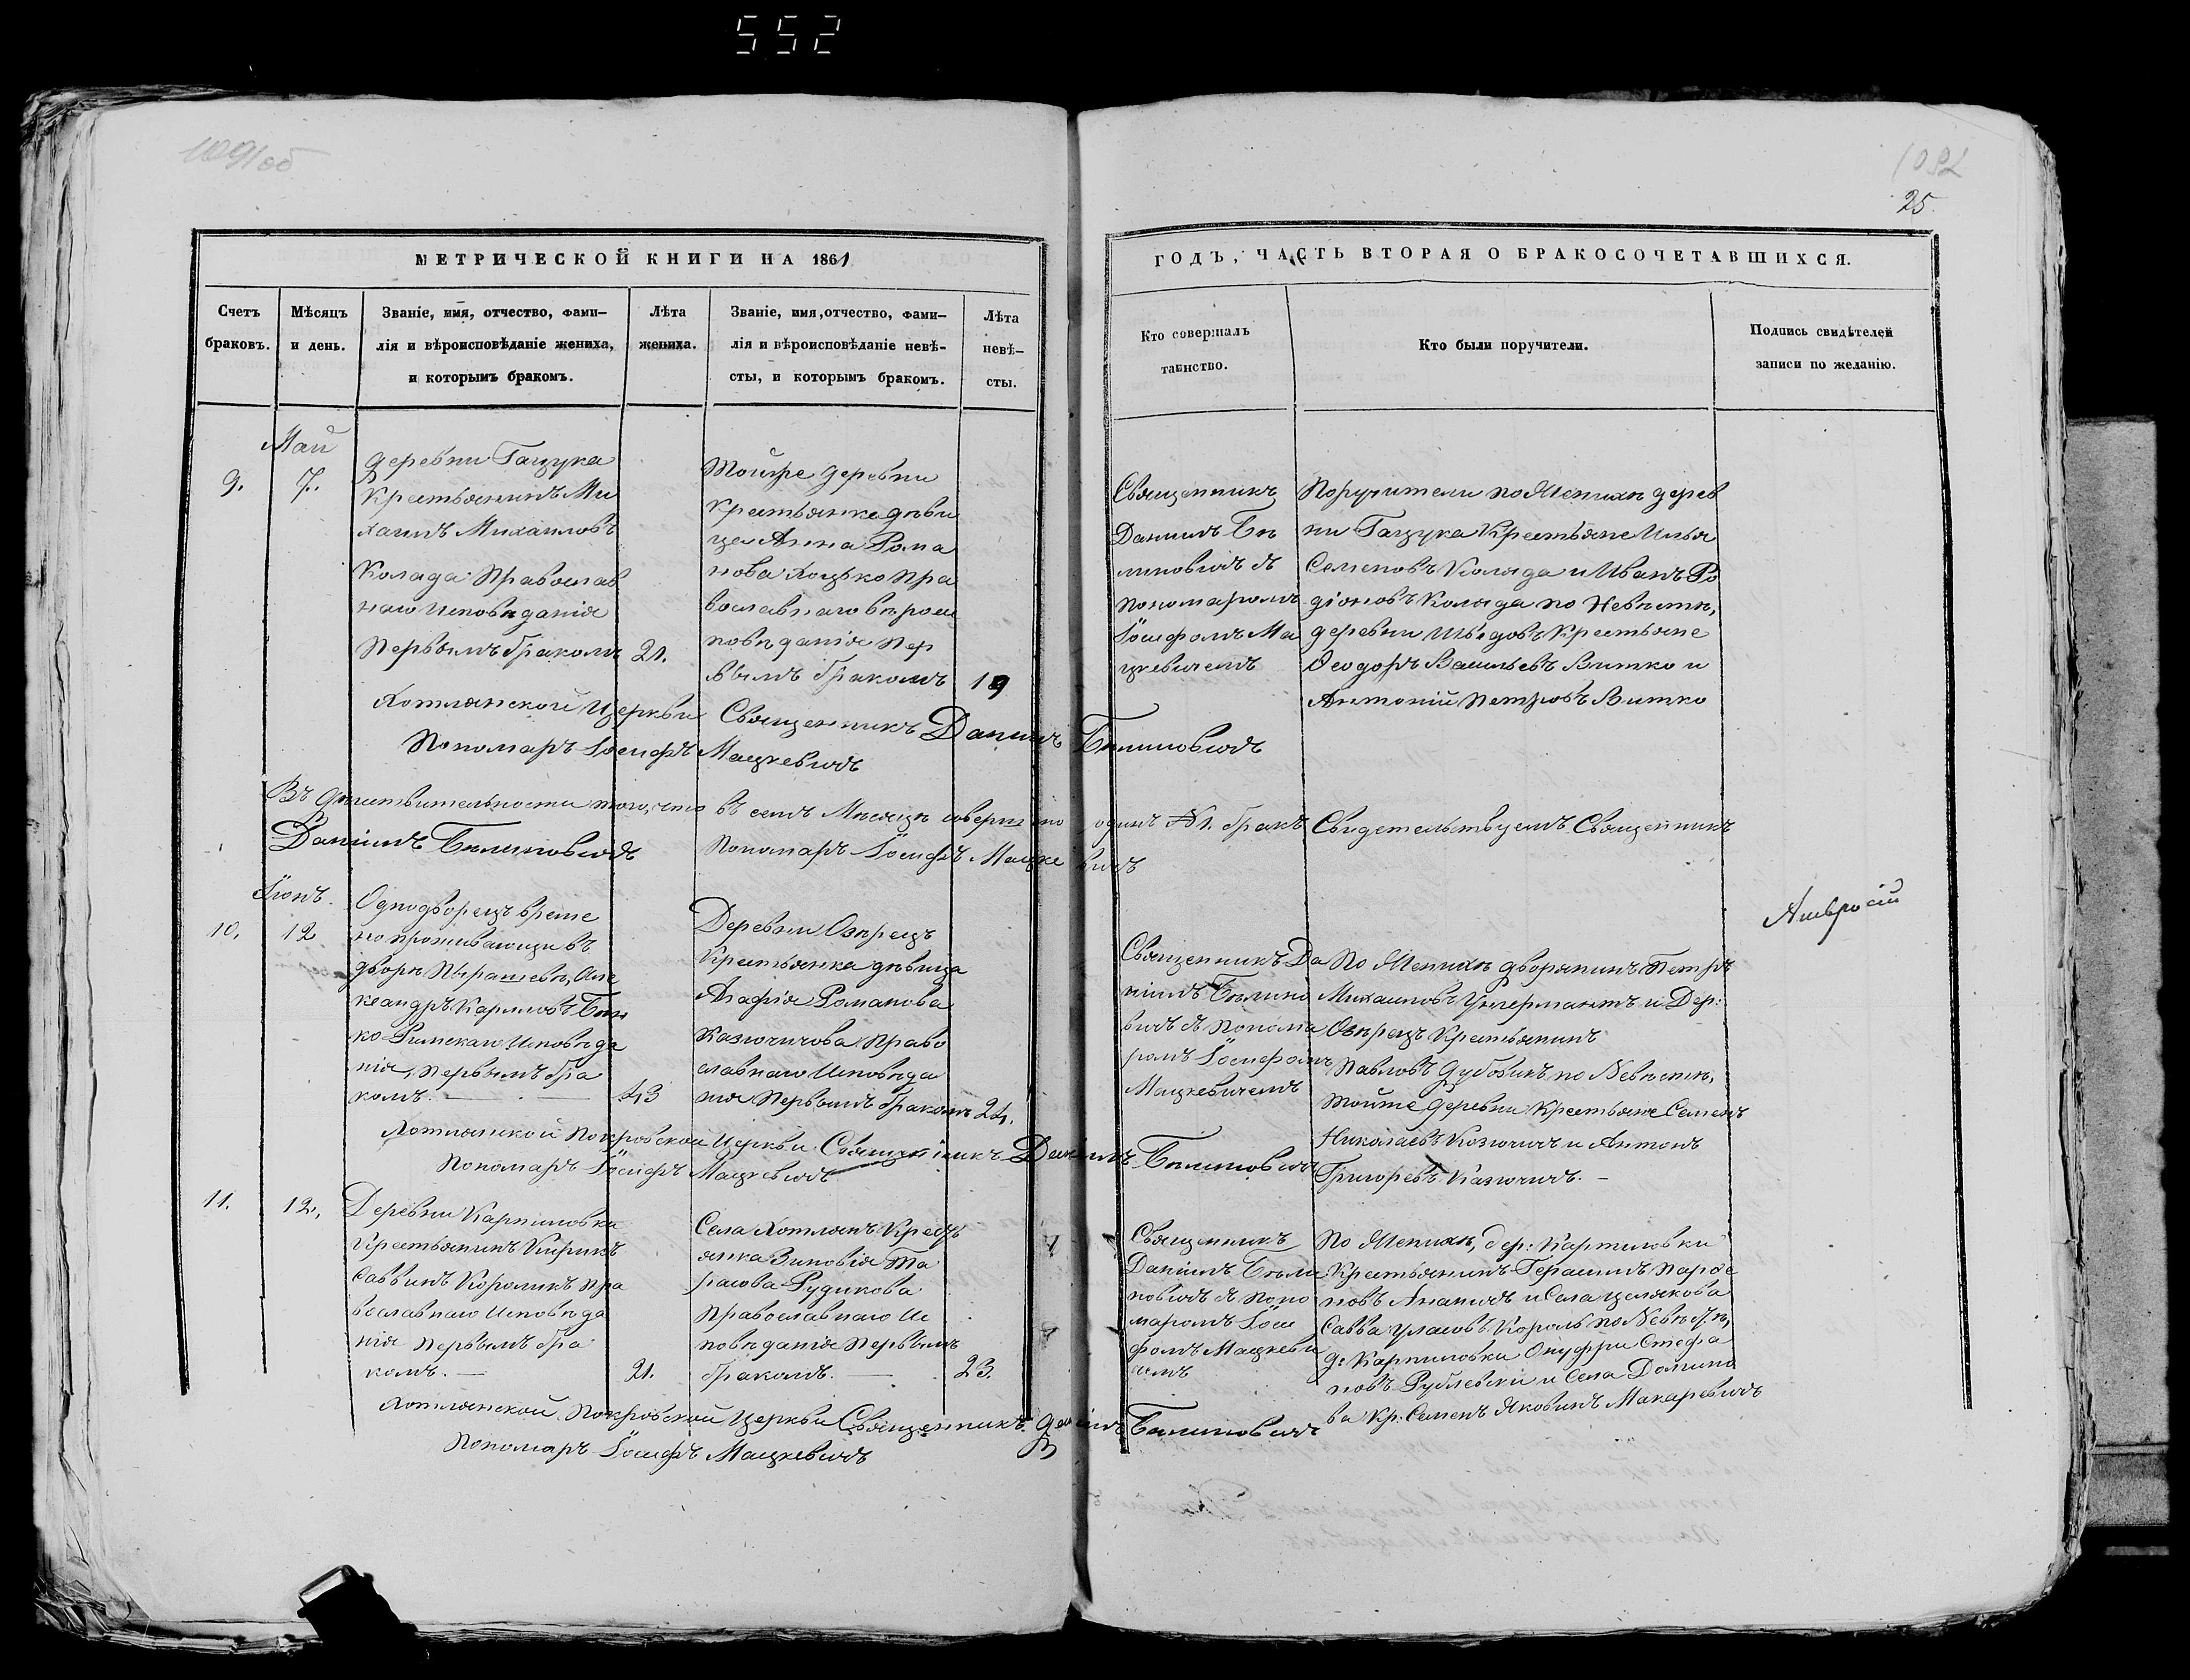 552
1091об
1092
25
МЕТРИЧЕСКОЙ КНИГИ НА 1861
ГОДЪ, ЧАСТЬ ВТОРАЯ О БРАКОСОЧЕТАВШИХСЯ.
Счетъ
браковъ.
Мѣсяцъ
и день.
Званіе, имя, отчество, фами-
лія и вѣроисповѣданіе жениха,
и которымъ бракомъ.
Лѣта
жениха.
Званіе, имя, отчество, фами-
лія и вѣроисповѣданіе невѣ-
сты, и которымъ бракомъ.
Лѣта
невѣ-
сты.
Кто совершалъ
таинство.
Кто были поручители.
Подпись свидѣтелей
записи по желанію.
Май
9.
7.
деревни Гацука
Крестьянинъ Ми
хаилъ Михаиловъ
Коляда Православ
наго Исповѣданія
Первымъ бракомъ
21.
Тойже деревни
Крестьянка дѣви
ца Анна Рома
нова Лоцько Пра
вославнаго вѣроис
повѣданія Пер
вымъ бракомъ
19
Священникъ
Даниилъ Бѣ
линовичъ съ
пономаромъ
Іосифомъ Ма
цкевичемъ
Поручители по Женихѣ дерев
ни Гацука Крестьяне Илья
Семеновъ Коляда и Иванъ Ро
діоновъ Коляда по Невѣстѣ,
деревни Шведовъ Крестьяне
Феодоръ Васильевъ Витко и
Антоній Петровъ Витко
Хотлянской Церкви Священникъ Даниилъ Бѣлиновичъ
Пономаръ Іосифъ Мацкевичъ
Въ дѣйствительности того, что въ семъ Мѣсяцѣ совершено одинъ №1. бракъ Свидетельствуемъ Священникъ
Даніилъ Бѣлиновичъ Пономаръ Іосифъ Мацкевичъ
Іюнь.
10.
12
Однодворецъ време
но проживающи въ
дворѣ Пырашевѣ, Але
ксандръ Карловъ
ко Римскаго Исповѣда
нія, первымъ бра
комъ.
43
Деревни Озерецъ
Крестьянка дѣвица
Агафія Романова
Казючичова Право
славнаго Исповѣда
нія Первымъ бракомъ
24.
Священникъ Да
ніилъ Бѣлино
вичъ съ Понома
ромъ Іосифомъ
Мацкевичемъ
По Женихѣ дворянинъ Петръ
Михаиловъ Унгермантъ и Дер:
Озерецъ Крестьянинъ
Павловъ Дубовикъ по Невѣстѣ,
тойже Деревни Крестьяне Семенъ
Николаевъ Козючичъ и Антонъ
Григорьевъ Казючичъ. —
Амвросій
Хотлянской Покровской Церкви Священникъ Даніилъ Бѣлиновичъ
Пономаръ Іосифъ Мацкевичъ
11.
12.
Деревни Карпиловки
Крестьянинъ Кирикъ
Саввинъ Короликъ Пра
вославнаго Исповѣда
нія Первымъ бра
комъ. —
21.
Села Хотлянъ Крест
янка Зиновія Та
расова Рудикова
Православнаго Ис
повѣданія Первымъ
бракомъ. —
23.
Священникъ
Даніилъ Бѣли
новичъ съ Поно
маромъ Іоси
фомъ Мацкеви
чемъ
По Женихѣ, дер: Карпиловки
Крестьянинъ Герасимъ Парфе
новъ Ананичъ и Села Целякова
Савва Уласовъ Король по Невѣстѣ,
д: Карпиловки Онуфри Стефа
новъ Рублевски и Села Долино
ва Кр: Семенъ Яковинъ Макаревичъ
Хотлянской Покровской Церкви Священникъ Даніилъ Бѣлиновичъ
Пономаръ Іосифъ Мацкевичъ